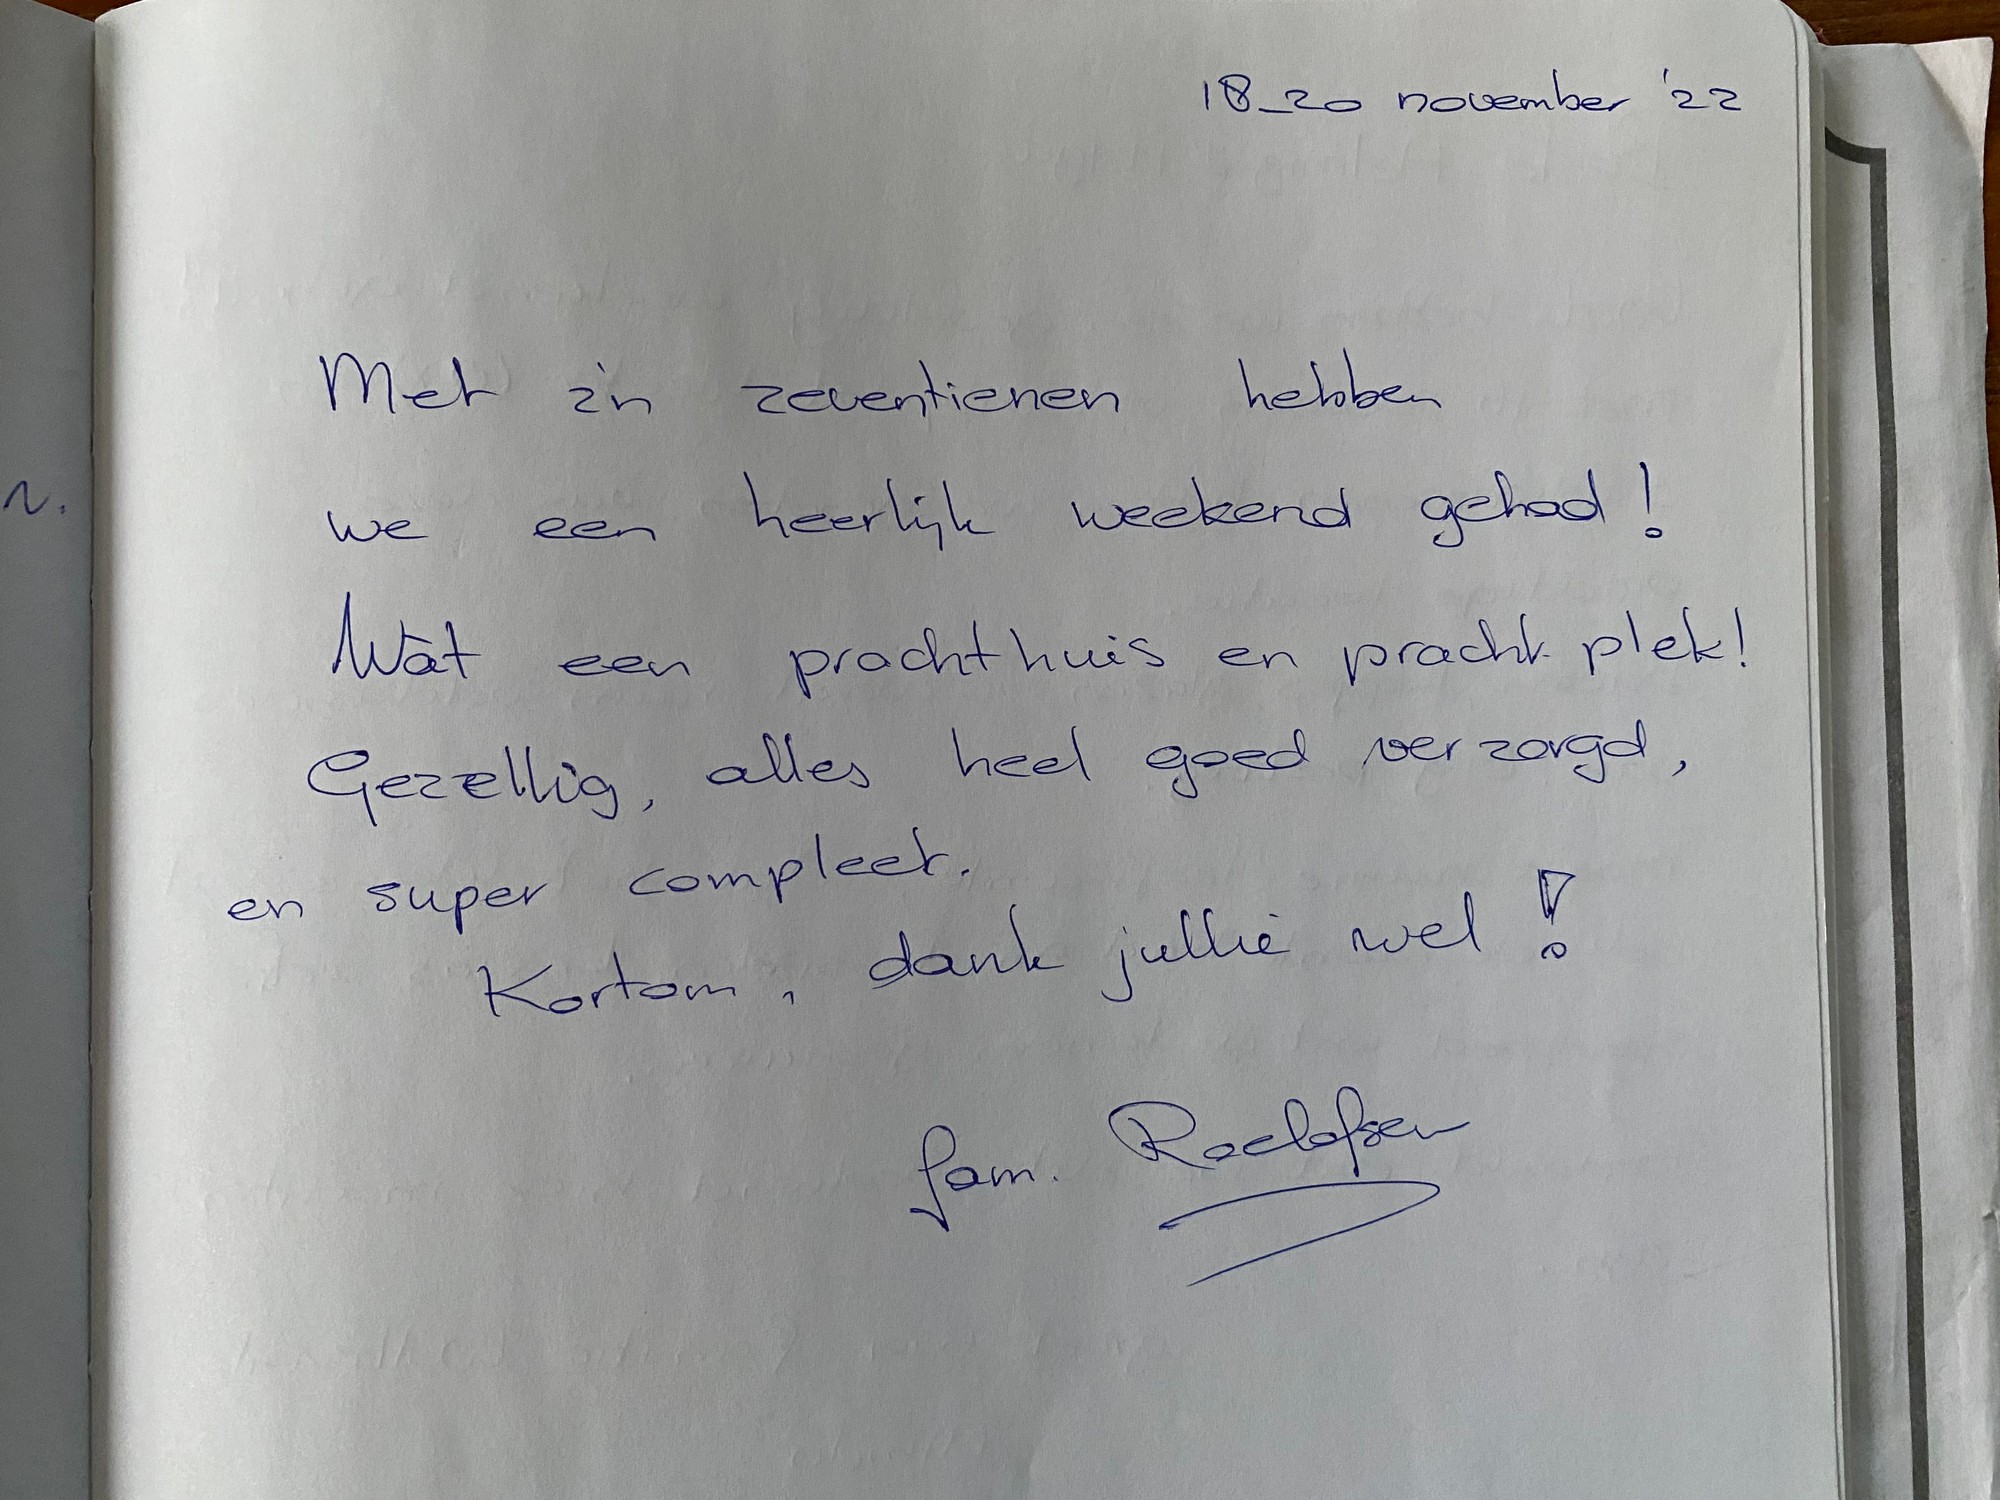 18-20 november '22
Met z'n zeventienen hebben
we een heerlijk weekend gehad!
Wat een prachthuis en pracht plek!
Gezellig, alles heel goed verzorgd,
en super compleet.
Kortom, dank jullie wel!
fam. Roelofsen